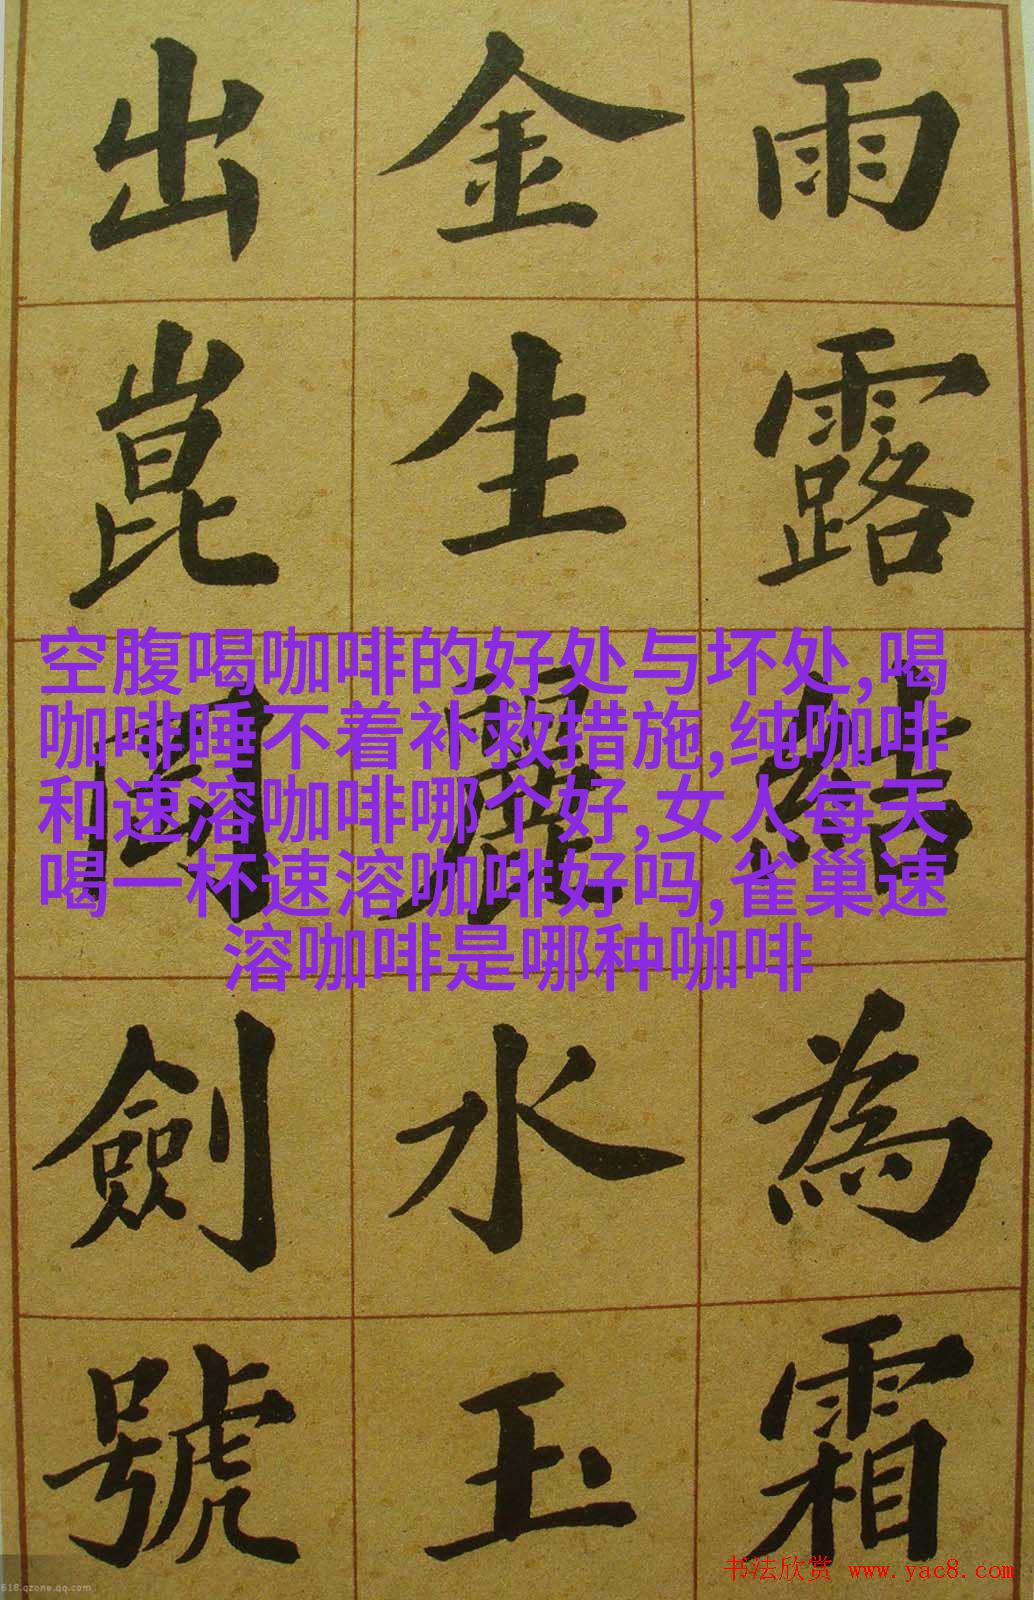 雨露結為霜
金生麗水玉
出崑岡劍號
空腹喝咖啡的好处与坏处,喝
咖啡睡不着补救措施,纯咖啡
和速溶咖啡哪个好,女人每天
喝一杯速溶咖啡好吗,雀巢速
溶咖啡是哪种咖啡
书法欣赏 www.yac8.com
618.qzone.qq.com